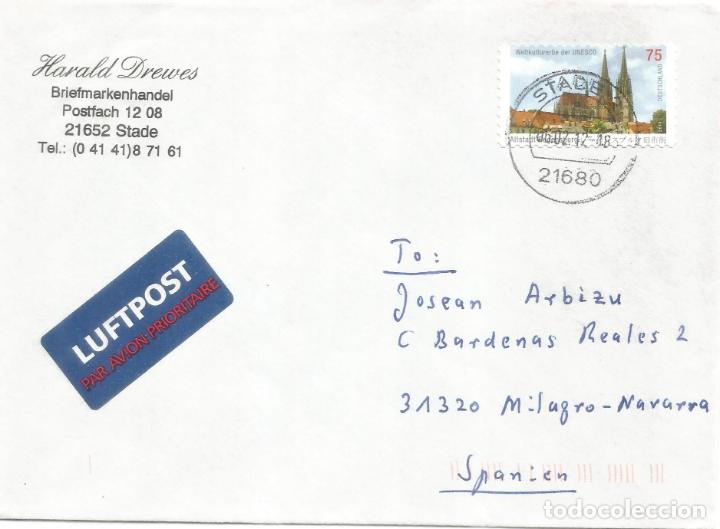 Harald Drewes
Briefmarkenhandel
Postfach 12 08
21652 Stade
Tel.: (0 41 41)8 71 61
Weltkulturerbe der UNESCO
75
DEUTSCHLAND
STADE
21680
LUFTPOST
PAR AVION PRIORITAIRE
To:
Josean Arbizu
C Bardenas Reales 2
31320 Milagro-Navarra
Spanien
todocoleccion